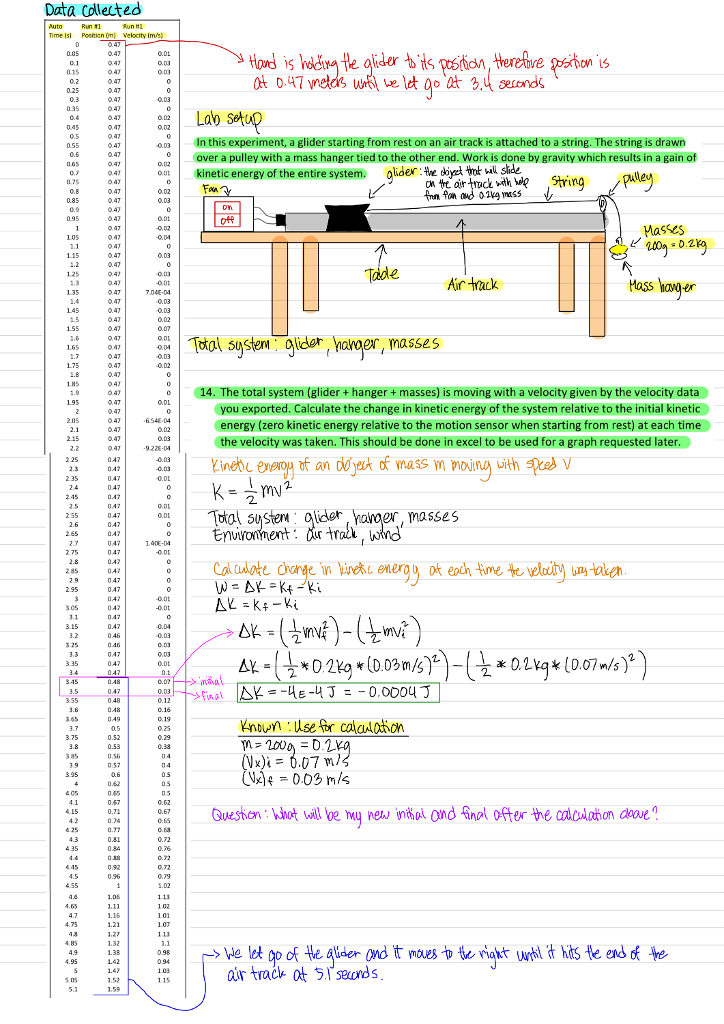 Data Collected
Auto Run #1 Run #1
Time (s) Position (m) Velocity (m/s)
0 0.47
0.05 0.47 0.01
0.1 0.47 0.03
0.15 0.47 0.03
0.2 0.47 0
0.25 0.47 0
0.3 0.47 -0.03
0.35 0.47 0
0.4 0.47 0.02
0.45 0.47 0.02
0.5 0.47 0
0.55 0.47 -0.03
0.6 0.47 0
0.65 0.47 0.02
0.7 0.47 0.01
0.75 0.47 0
0.8 0.47 0.02
0.85 0.47 0.03
0.9 0.47 0
0.95 0.47 0.01
1 0.47 -0.02
1.05 0.47 -0.04
1.1 0.47 0
1.15 0.47 0.03
1.2 0.47 0
1.25 0.47 -0.03
1.3 0.47 -0.01
1.35 0.47 7.04E-04
1.4 0.47 -0.03
1.45 0.47 -0.03
1.5 0.47 0.02
1.55 0.47 0.07
1.6 0.47 0.01
1.65 0.47 -0.04
1.7 0.47 -0.03
1.75 0.47 -0.02
1.8 0.47 0
1.85 0.47 0
1.9 0.47 0
1.95 0.47 0.01
2 0.47 0
2.05 0.47 -6.54E-04
2.1 0.47 0.02
2.15 0.47 0.03
2.2 0.47 -9.22E-04
2.25 0.47 -0.03
2.3 0.47 -0.03
2.35 0.47 -0.01
2.4 0.47 0
2.45 0.47 0
2.5 0.47 0.01
2.55 0.47 0.01
2.6 0.47 0
2.65 0.47 0
2.7 0.47 1.40E-04
2.75 0.47 -0.01
2.8 0.47 0
2.85 0.47 0
2.9 0.47 0
2.95 0.47 0
3 0.47 -0.01
3.05 0.47 -0.01
3.1 0.47 0
3.15 0.47 -0.04
3.2 0.46 -0.03
3.25 0.46 0.03
3.3 0.47 0.03
3.35 0.47 0.01
3.4 0.47 0.1
3.45 0.48 0.07 → initial
3.5 0.47 0.03 → final
3.55 0.48 0.12
3.6 0.48 0.16
3.65 0.49 0.19
3.7 0.5 0.25
3.75 0.52 0.29
3.8 0.53 0.38
3.85 0.56 0.4
3.9 0.57 0.4
3.95 0.6 0.5
4 0.62 0.5
4.05 0.65 0.5
4.1 0.67 0.62
4.15 0.71 0.67
4.2 0.74 0.65
4.25 0.77 0.68
4.3 0.81 0.72
4.35 0.84 0.76
4.4 0.88 0.72
4.45 0.92 0.72
4.5 0.96 0.79
4.55 1 1.02
4.6 1.06 1.13
4.65 1.11 1.02
4.7 1.16 1.01
4.75 1.21 1.07
4.8 1.27 1.13
4.85 1.32 1.1
4.9 1.38 0.98
4.95 1.42 0.94
5 1.47 1.03
5.05 1.52 1.15
5.1 1.59
Hand is holding the glider to its position, therefore position is
at 0.47 meters until we let go at 3.4 seconds
Lab setup
In this experiment, a glider starting from rest on an air track is attached to a string. The string is drawn
over a pulley with a mass hanger tied to the other end. Work is done by gravity which results in a gain of
kinetic energy of the entire system.
glider: the object that will slide
on the air track with help
from fan and 0.2kg mass
Fan
on
off
String
pulley
Masses
200g = 0.2kg
Mass hanger
Table
Air track
Total system: glider, hanger, masses
14. The total system (glider + hanger + masses) is moving with a velocity given by the velocity data
you exported. Calculate the change in kinetic energy of the system relative to the initial kinetic
energy (zero kinetic energy relative to the motion sensor when starting from rest) at each time
the velocity was taken. This should be done in excel to be used for a graph requested later.
Kinetic energy of an object of mass m moving with speed V
K = 1/2 mv²
Total system: glider, hanger, masses
Environment: air track, wind
Calculate change in kinetic energy at each time the velocity was taken.
W = ΔK = Kf - Ki
ΔK = Kf - Ki
ΔK = (1/2 mvf²) - (1/2 mvi²)
ΔK = (1/2 * 0.2kg * (0.03m/s)²) - (1/2 * 0.2kg * (0.07m/s)²)
ΔK = -4E-4 J = -0.0004 J
Known: Use for calculation
m = 200g = 0.2kg
(Vx)i = 0.07 m/s
(Vx)f = 0.03 m/s
Question: What will be my new initial and final after the calculation above?
→ We let go of the glider and it moves to the right until it hits the end of the
air track at 5.1 seconds.